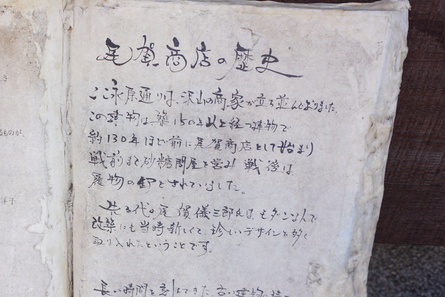 尾賀商店の歴史
ここ永原通りは、沢山の商家が立ち並んでおりました。
この建物は、築150年以上経つ建物で
約130年ほど前に尾賀商店として始まり
戦前まで砂糖問屋を営み、戦後は
履物の卸をされていました。
先代の尾賀儀三郎氏は、モダンな人で
改築にも当時新しくて、珍しいデザインを多く
取り入れたということです。
長い時間を刻んできた、古い建物